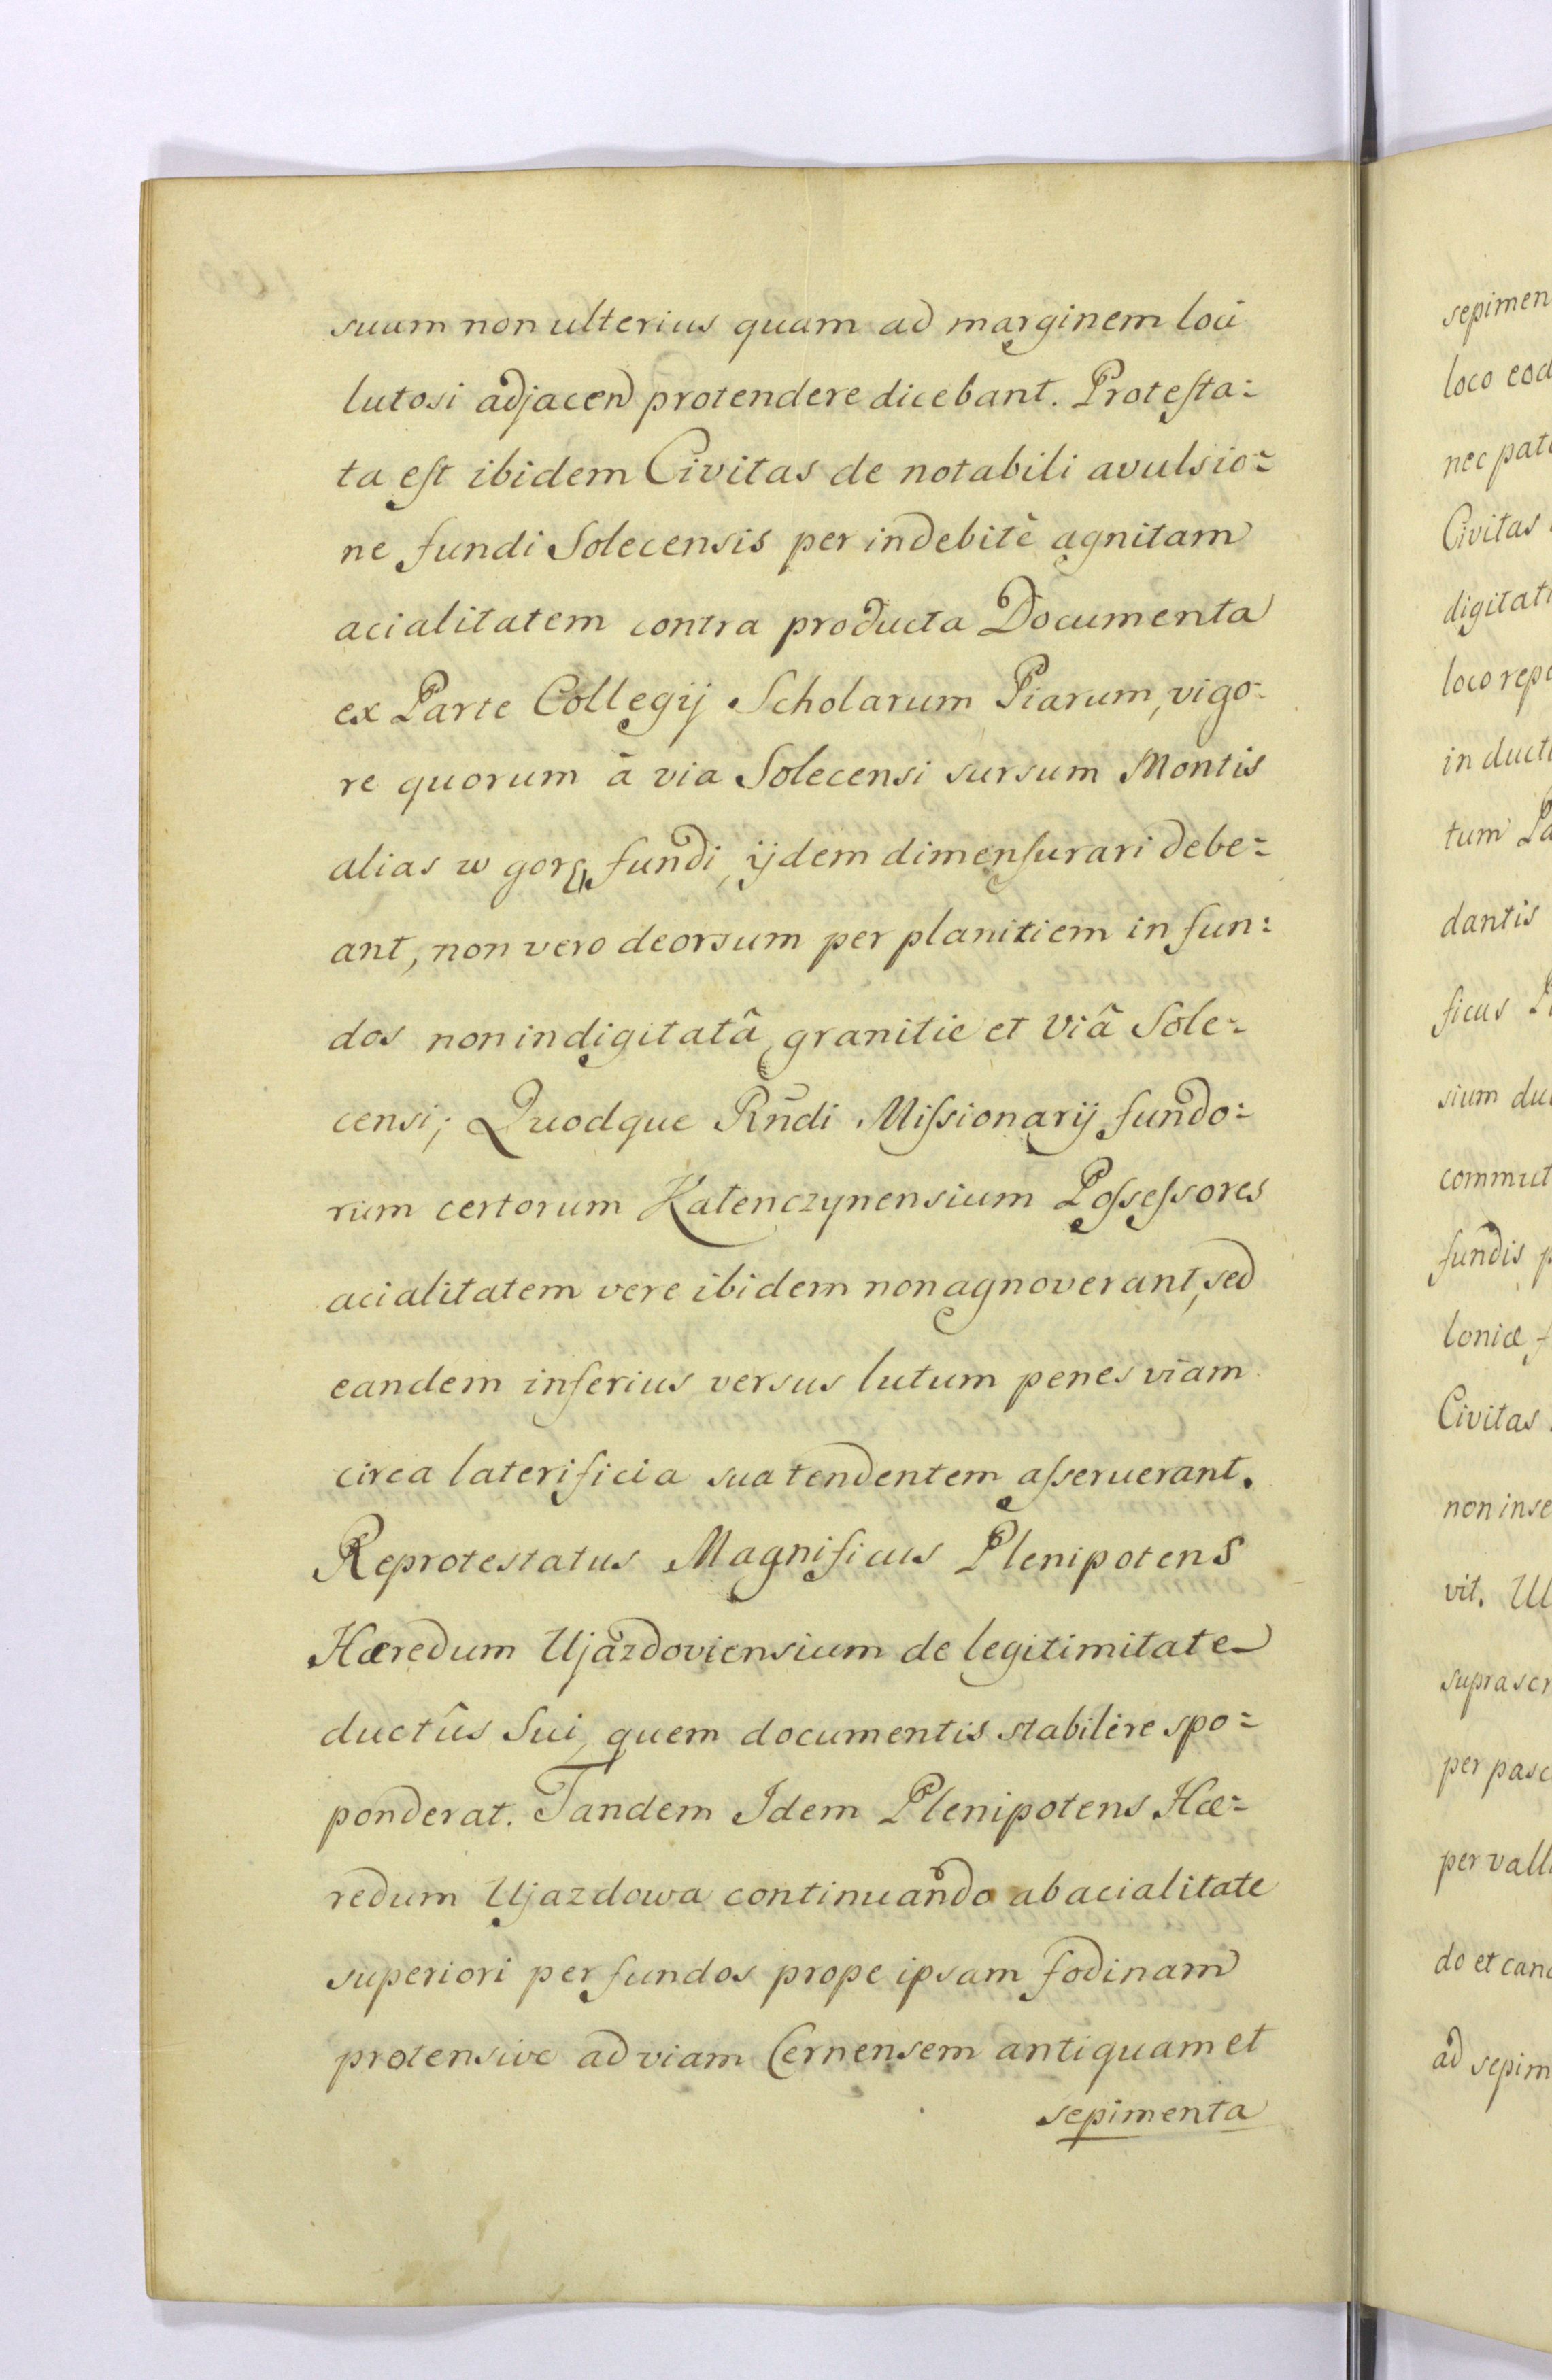 suam non ulterius quam ad marginem loci
lutosi adjacen protendere dicebant. Protesta=
ta est ibidem Civitas de notabili avulsio=
ne fundi Solecensis per indebitè agnitam
acialitatem contra producta Documenta
ex Parte Collegij Scholarum Piarum, vigo=
re quorum à via Solecensi sursum Montis
alias w gorę fundi, ijdem dimensurari debe=
ant, non vero deorsum per planitiem in fun=
dos non indigitatâ granitie et Viâ Sole=
censi; Quodque Rñdi Missionarij fundo=
rum certorum Kałenczynensium Possessores
acialitatem vere ibidem non agnoverant, sed
eandem inferius versus lutum penes viam
circa laterificia sua tendentem asseruerant.
Reprotestatus Magnificus Plenipotens
Hæredum Ujazdoviensium de legitimitate
ductûs sui, quem documentis stabilire spo=
ponderat. Tandem Idem Plenipotens Hæ=
redum Ujazdowa continuando ab acialitate
superiori per fundos prope ipsam fodinam
protensive ad viam Cernensem antiquam et
sepimenta
sepimen
loco eod
nec pat
Civitas
digitat
loco rep
in duct
tum
dantis
ficus
sium du
commut
fundis
loniæ
Civitas
non inse
vit. Ul
suprascr
per pasc
per vall
do et can
ad sepim